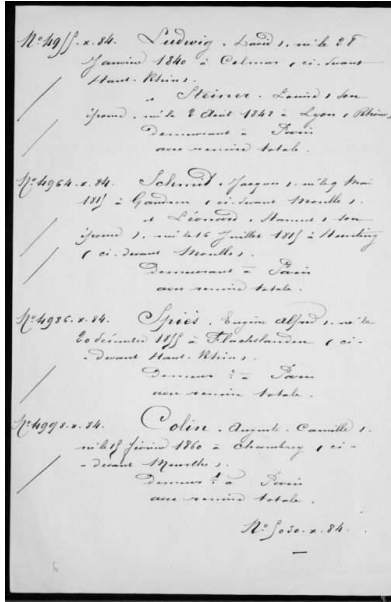 No 4955.x.84. Ludwig, David, né le 28
Janvier 1840 à Colmar (ci-devant
Haut-Rhin),
Steiner, Louise, son
épouse, née le 2 Août 1842 à Lyon (Rhône)
demeurant à Paris
avec remise totale.
No 4964.x.84. Schmid, Jacques, né le 9 Mai
1815 à (ci-devant Moselle),
et Léonard, son
épouse, née le 16 Juillet 1815 à
(ci-devant Moselle),
demeurant à Paris
avec remise totale.
No 4986.x.84. Spies, Eugène Alfred, né le
20 décembre 1855 à Flachslanden (ci-
-devant Haut-Rhin),
demeurt à Paris
avec remise totale.
No 4998.x.84. Colin, Auguste Camille,
né le février 1860 à Chambrey (ci-
-devant Meurthe),
demeurt à Paris
avec remise totale.
No 5030.x.84.